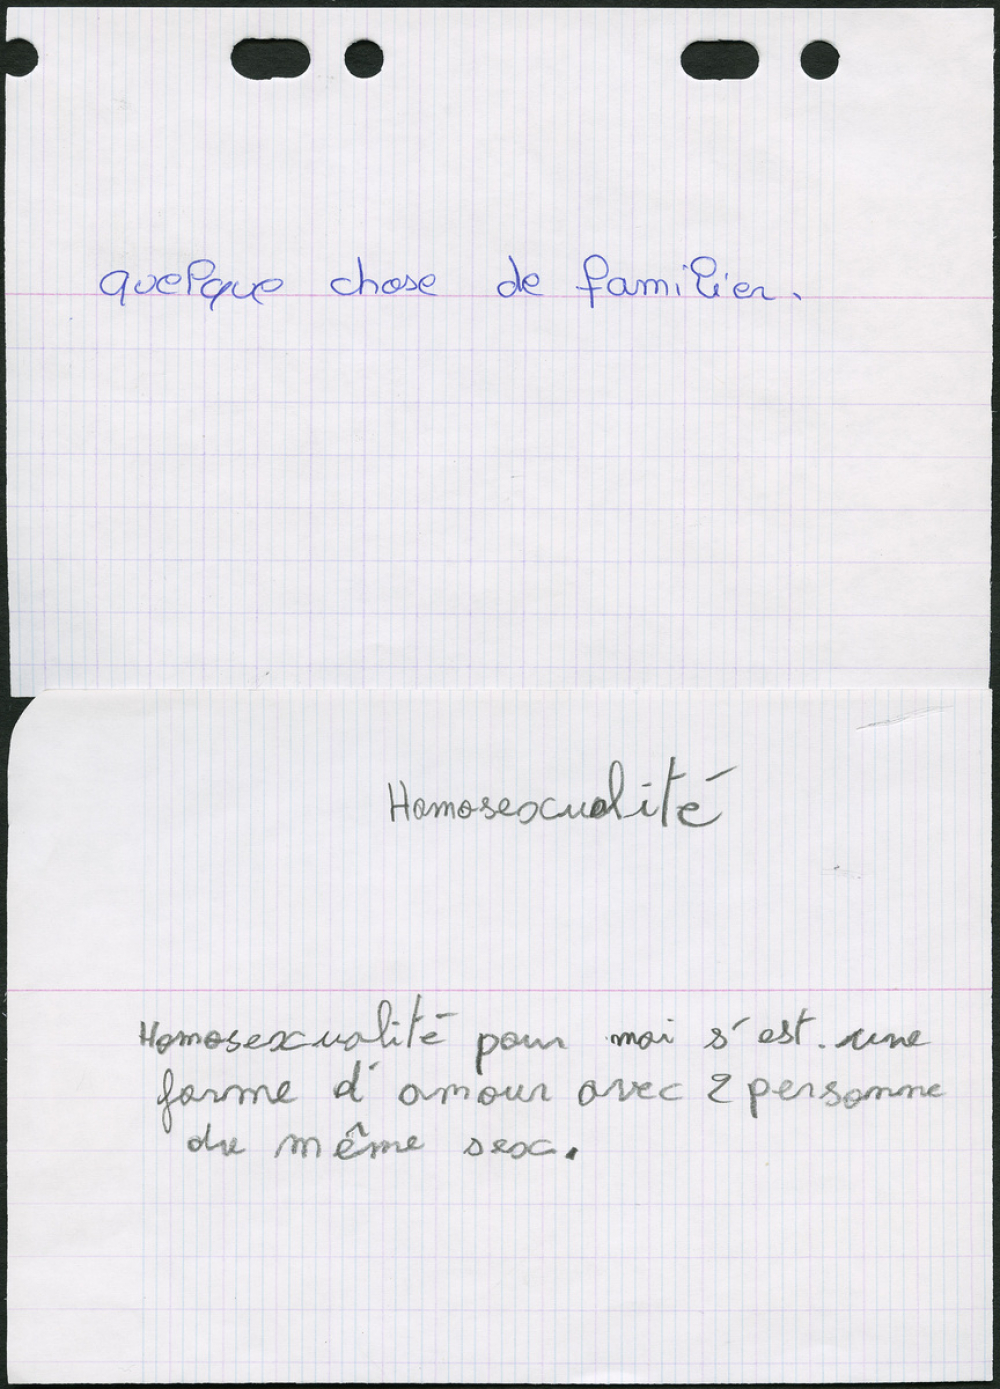 quelque chose de familier.
Homosexualité
Homosexualité pour moi s'est. une
forme d'amour avec 2 personne
du même sex.